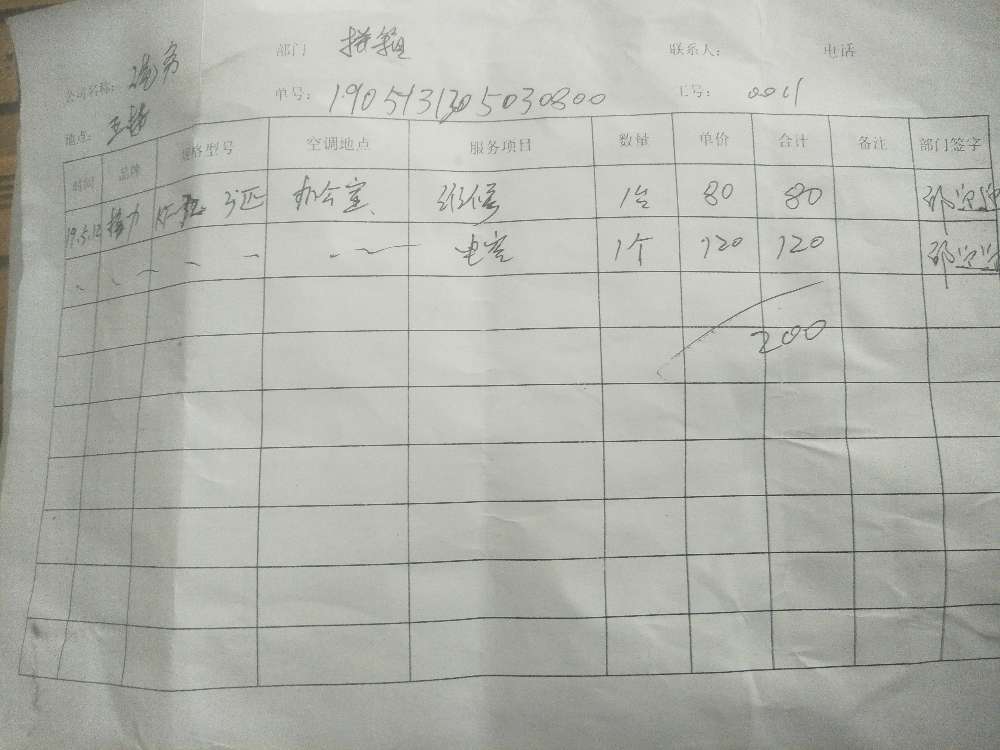 部门 拼箱 联系人: 电话
公司名称: 港务
单号: 1905131305030800 工号: 0011
地点:
时间 品牌 规格型号 空调地点 服务项目 数量 单价 合计 备注 部门签字
19.5.12 格力 3匹 办公室 维修 1台 80 80
电容 1个 120 120
200